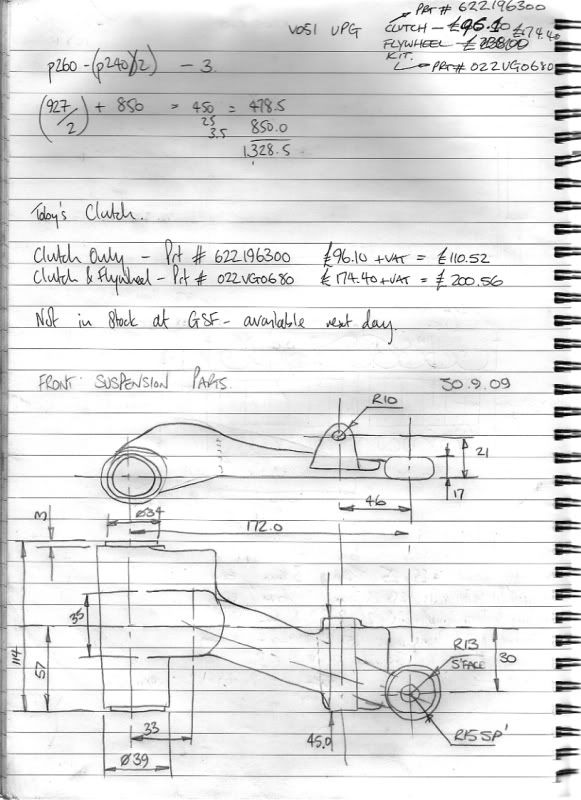 PRT# 622196300
VOSI UPG CLUTCH - £96.10 £174.40
FLYWHEEL - £
KIT.
PRT# 022VG0680
p260 - (p240)(2) - 3.
(927/2) + 850 = 450 = 478.5
25 850.0
3.5
1,328.5
Toby's Clutch.
Clutch Only - Prt # 622196300 £96.10 +VAT = £110.52
Clutch & Flywheel - Prt # 022VG0680 £174.40 +VAT = £200.56
Not in Stock at GSF - available next day.
FRONT SUSPENSION PARTS 30.9.09
R10
21
17
46
Ø34
172.0
3
35
114
57
33
Ø39
45.0
30
R13
S'FACE
R15 SP'